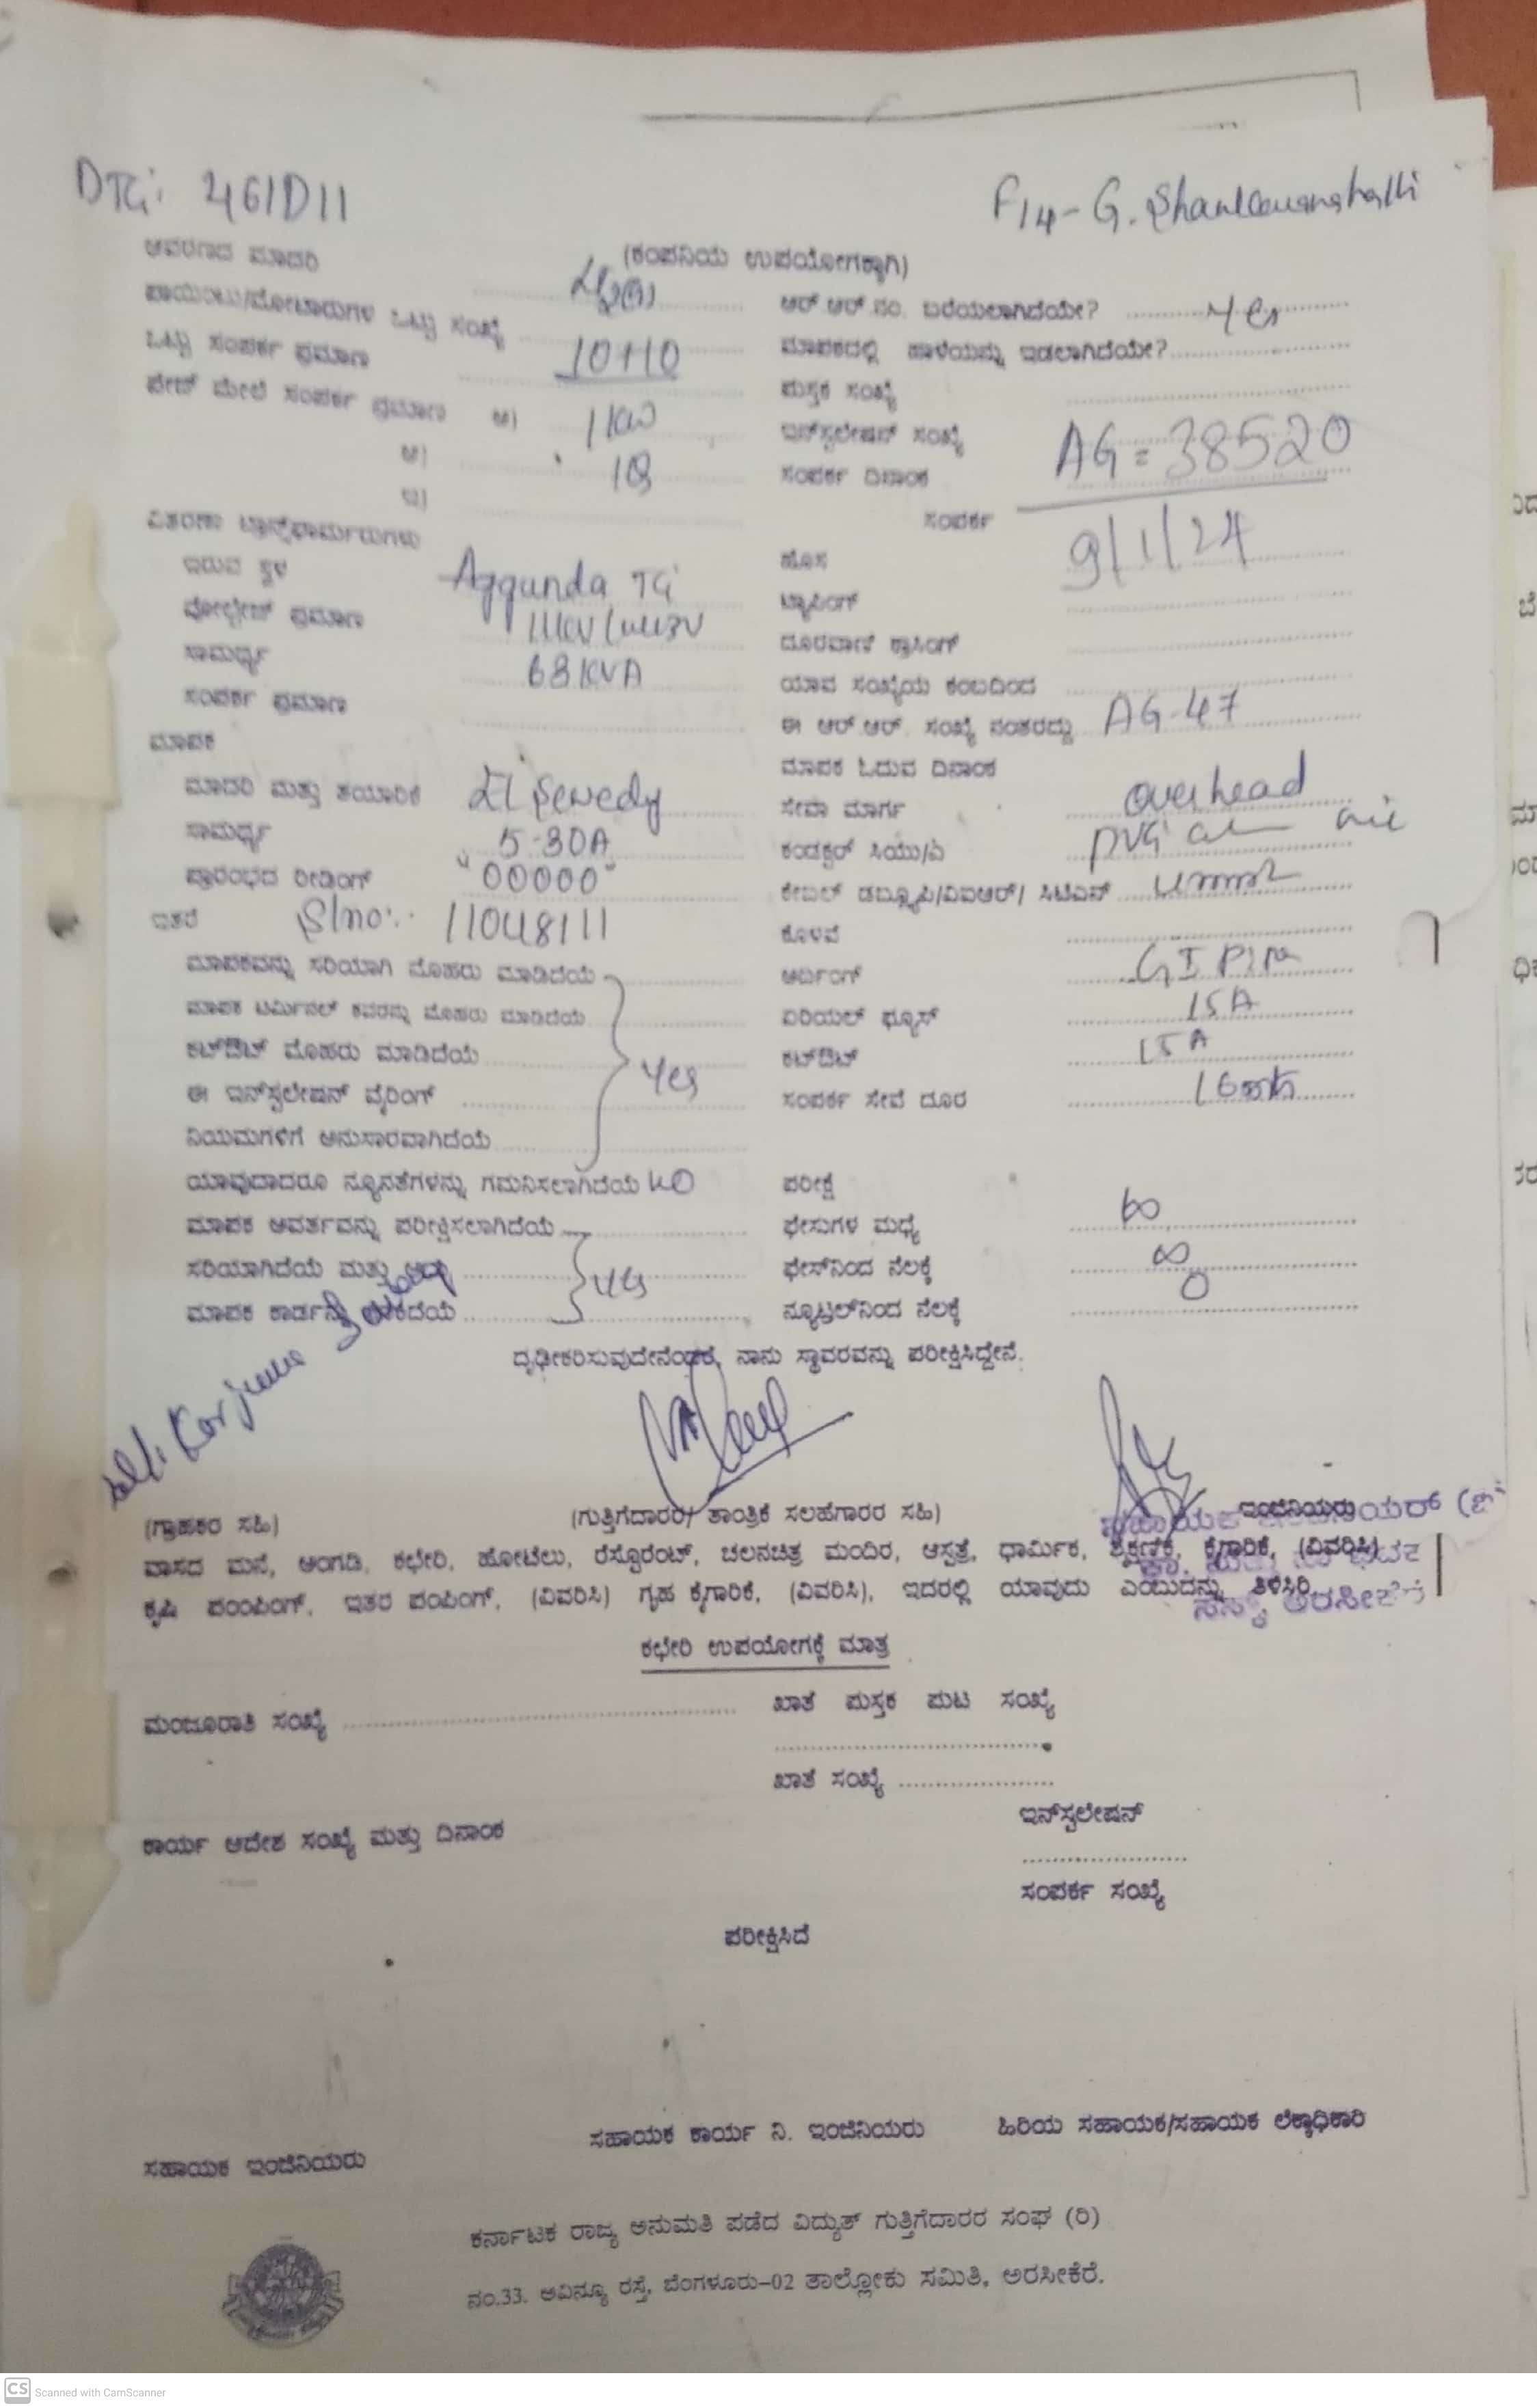 DTC: 461D11
F14- G. Shankaranahalli
(ಕಂಪನಿಯ ಉಪಯೋಗಕ್ಕಾಗಿ)
ಆವರಣದ ಮಾದರಿ
ಆರ್.ಆರ್.ನಂ. ಬರೆಯಲಾಗಿದೆಯೇ? Yes
ಪಾಯಿಂಟು/ಮೋಟಾರುಗಳ ಒಟ್ಟು ಸಂಖ್ಯೆ
ಮಾಪಕದಲ್ಲಿ ಹಾಳೆಯನ್ನು ಇಡಲಾಗಿದೆಯೇ?
ಒಟ್ಟು ಸಂಪರ್ಕ ಪ್ರಮಾಣ 10+10
ಪುಸ್ತಕ ಸಂಖ್ಯೆ
ಪೇಜ್ ಮೇಲೆ ಸಂಪರ್ಕ ಪ್ರಮಾಣ ಅ) 1KW
ಇನ್‌ಸ್ಟಲೇಷನ್ ಸಂಖ್ಯೆ AG = 38520
ಆ)
ಸಂಪರ್ಕ ದಿನಾಂಕ
ಇ)
ಸಂಪರ್ಕ 9/1/24
ವಿತರಣಾ ಟ್ರಾನ್ಸ್‌ಫಾರ್ಮರುಗಳು
ಹೊಸ
ಇರುವ ಸ್ಥಳ Aggunda TC
ಟ್ಯಾಪಿಂಗ್
ವೋಲ್ಟೇಜ್ ಪ್ರಮಾಣ
ದೂರವಾಣಿ ಕ್ರಾಸಿಂಗ್
ಸಾಮರ್ಥ್ಯ 63KVA
ಯಾವ ಸಂಖ್ಯೆಯ ಕಂಬದಿಂದ
ಸಂಪರ್ಕ ಪ್ರಮಾಣ
ಈ ಆರ್.ಆರ್. ಸಂಖ್ಯೆ ನಂತರದ್ದು AG-47
ಮಾಪಕ
ಮಾಪಕ ಓದುವ ದಿನಾಂಕ
ಮಾದರಿ ಮತ್ತು ತಯಾರಿಕೆ El Sewedy
ಸೇವಾ ಮಾರ್ಗ overhead
ಸಾಮರ್ಥ್ಯ 5-30A
ಕಂಡಕ್ಟರ್ ಸಿಯು/ಎ
ಪ್ರಾರಂಭದ ರೀಡಿಂಗ್ "00000"
ಕೇಬಲ್ ಡಬ್ಲ್ಯೂಪಿ/ವಿಐಆರ್/ ಸಿಟಿಎಸ್
ಇತರೆ S/no:- 11048111
ಕೊಳವೆ
ಮಾಪಕವನ್ನು ಸರಿಯಾಗಿ ಮೊಹರು ಮಾಡಿದೆಯೆ
ಅರ್ಥಿಂಗ್ GI Pipe
ಮಾಪಕ ಟರ್ಮಿನಲ್ ಕವರನ್ನು ಮೊಹರು ಮಾಡಿದೆಯೆ
ಏರಿಯಲ್ ಫ್ಯೂಸ್ 15A
ಕಟ್‌ಔಟ್ ಮೊಹರು ಮಾಡಿದೆಯೆ Yes
ಕಟ್‌ಔಟ್ 15A
ಈ ಇನ್‌ಸ್ಟಲೇಷನ್ ವೈರಿಂಗ್
ಸಂಪರ್ಕ ಸೇವೆ ದೂರ
ನಿಯಮಗಳಿಗೆ ಅನುಸಾರವಾಗಿದೆಯೆ
ಯಾವುದಾದರೂ ನ್ಯೂನತೆಗಳನ್ನು ಗಮನಿಸಲಾಗಿದೆಯೆ NO
ಪರೀಕ್ಷೆ
ಮಾಪಕ ಆವರ್ತವನ್ನು ಪರೀಕ್ಷಿಸಲಾಗಿದೆಯೆ
ಫೇಸುಗಳ ಮಧ್ಯೆ ∞
ಸರಿಯಾಗಿದೆಯೆ ಮತ್ತು Yes
ಫೇಸ್‌ನಿಂದ ನೆಲಕ್ಕೆ ∞
ಮಾಪಕ ಕಾರ್ಡನ್ನು
ನ್ಯೂಟ್ರಲ್‌ನಿಂದ ನೆಲಕ್ಕೆ 0
ದೃಢೀಕರಿಸುವುದೇನೆಂದರೆ, ನಾನು ಸ್ಥಾವರವನ್ನು ಪರೀಕ್ಷಿಸಿದ್ದೇನೆ.
(ಗ್ರಾಹಕರ ಸಹಿ)
(ಗುತ್ತಿಗೆದಾರರ/ ತಾಂತ್ರಿಕ ಸಲಹೆಗಾರರ ಸಹಿ)
ಇಂಜಿನಿಯರು
ವಾಸದ ಮನೆ, ಅಂಗಡಿ, ಕಛೇರಿ, ಹೋಟೆಲು, ರೆಸ್ಟೊರೆಂಟ್, ಚಲನಚಿತ್ರ ಮಂದಿರ, ಆಸ್ಪತ್ರೆ, ಧಾರ್ಮಿಕ, ಶೈಕ್ಷಣಿಕ, ಕೈಗಾರಿಕೆ, (ವಿವರಿಸಿ)
ಕೃಷಿ ಪಂಪಿಂಗ್, ಇತರ ಪಂಪಿಂಗ್, (ವಿವರಿಸಿ) ಗೃಹ ಕೈಗಾರಿಕೆ, (ವಿವರಿಸಿ), ಇದರಲ್ಲಿ ಯಾವುದು ಎಂಬುದನ್ನು ತಿಳಿಸಿರಿ
ಕಛೇರಿ ಉಪಯೋಗಕ್ಕೆ ಮಾತ್ರ
ಮಂಜೂರಾತಿ ಸಂಖ್ಯೆ
ಖಾತೆ ಪುಸ್ತಕ ಪುಟ ಸಂಖ್ಯೆ
ಖಾತೆ ಸಂಖ್ಯೆ
ಇನ್‌ಸ್ಟಲೇಷನ್
ಕಾರ್ಯ ಆದೇಶ ಸಂಖ್ಯೆ ಮತ್ತು ದಿನಾಂಕ
ಸಂಪರ್ಕ ಸಂಖ್ಯೆ
ಪರೀಕ್ಷಿಸಿದೆ
ಸಹಾಯಕ ಇಂಜಿನಿಯರು
ಸಹಾಯಕ ಕಾರ್ಯ ನಿ. ಇಂಜಿನಿಯರು
ಹಿರಿಯ ಸಹಾಯಕ/ಸಹಾಯಕ ಲೆಕ್ಕಾಧಿಕಾರಿ
ಕರ್ನಾಟಕ ರಾಜ್ಯ ಅನುಮತಿ ಪಡೆದ ವಿದ್ಯುತ್ ಗುತ್ತಿಗೆದಾರರ ಸಂಘ (ರಿ)
ನಂ.33. ಅವಿನ್ಯೂ ರಸ್ತೆ, ಬೆಂಗಳೂರು-02 ತಾಲ್ಲೋಕು ಸಮಿತಿ, ಅರಸೀಕೆರೆ.
CS Scanned with CamScanner